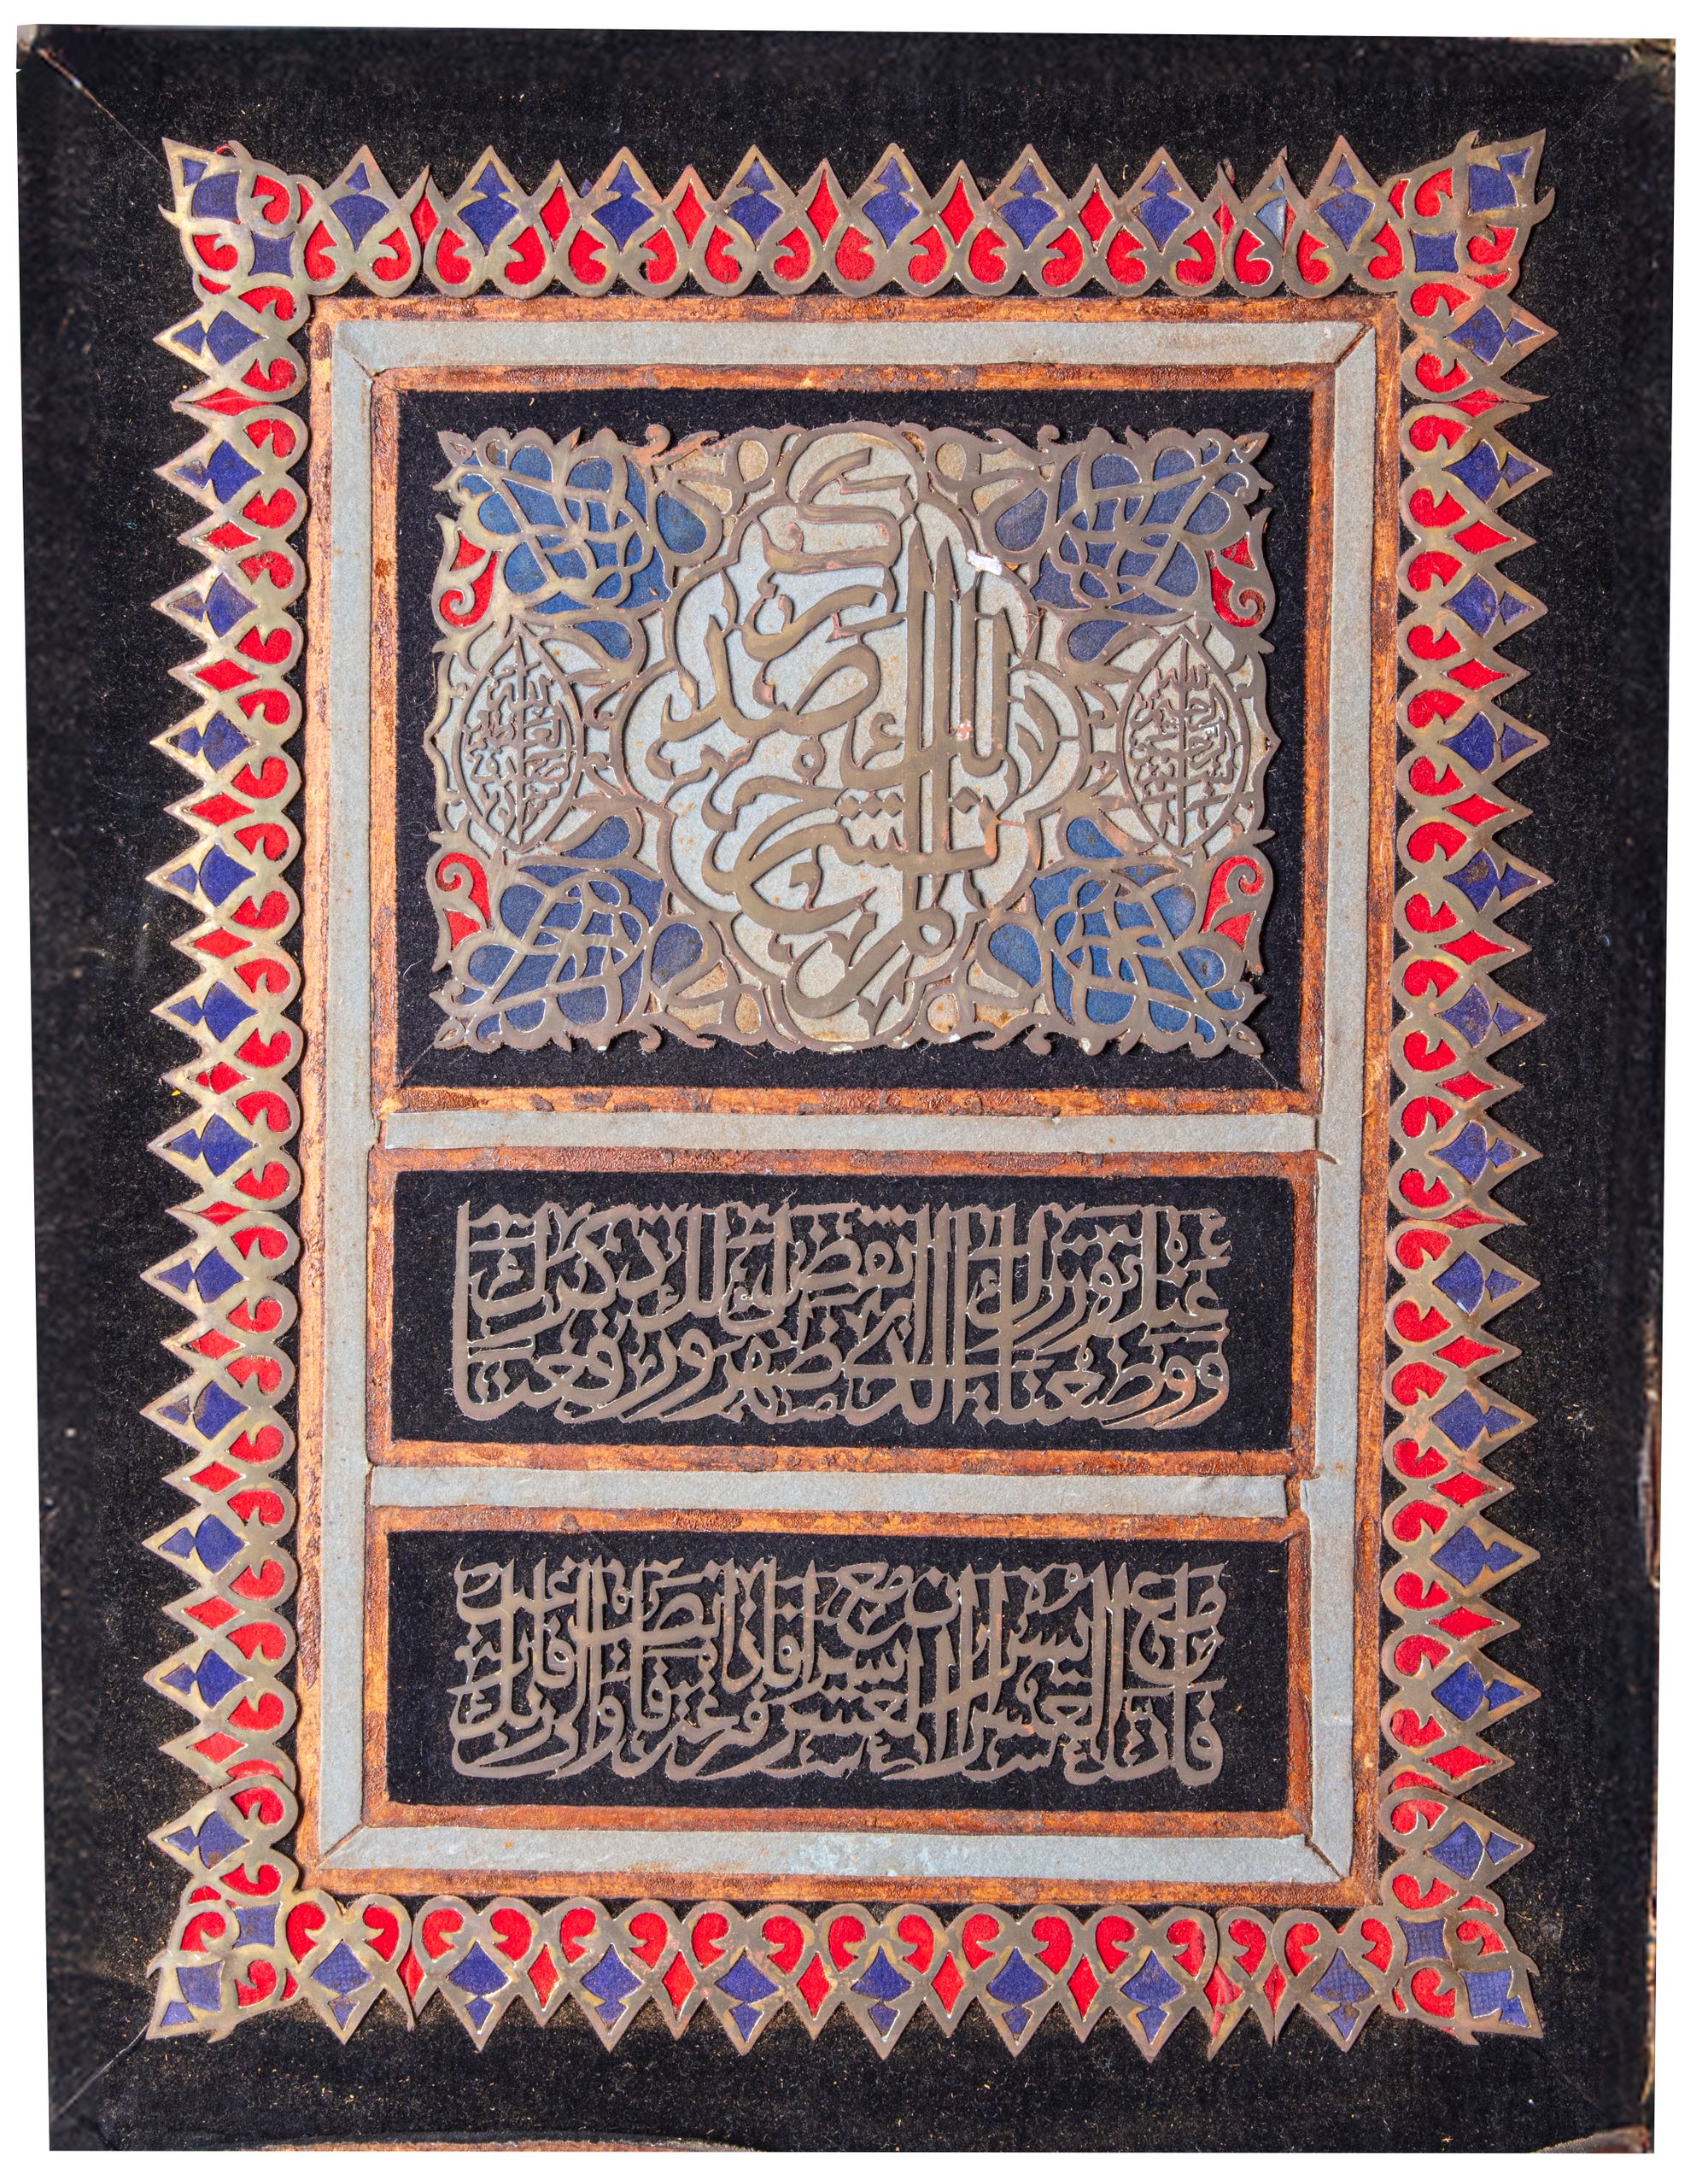 الم نشرح لك صدرك
ووضعنا عنك وزرك الذي انقض ظهرك ورفعنا لك ذكرك
فان مع العسر يسرا ان مع العسر يسرا فاذا فرغت فانصب والى ربك فارغب